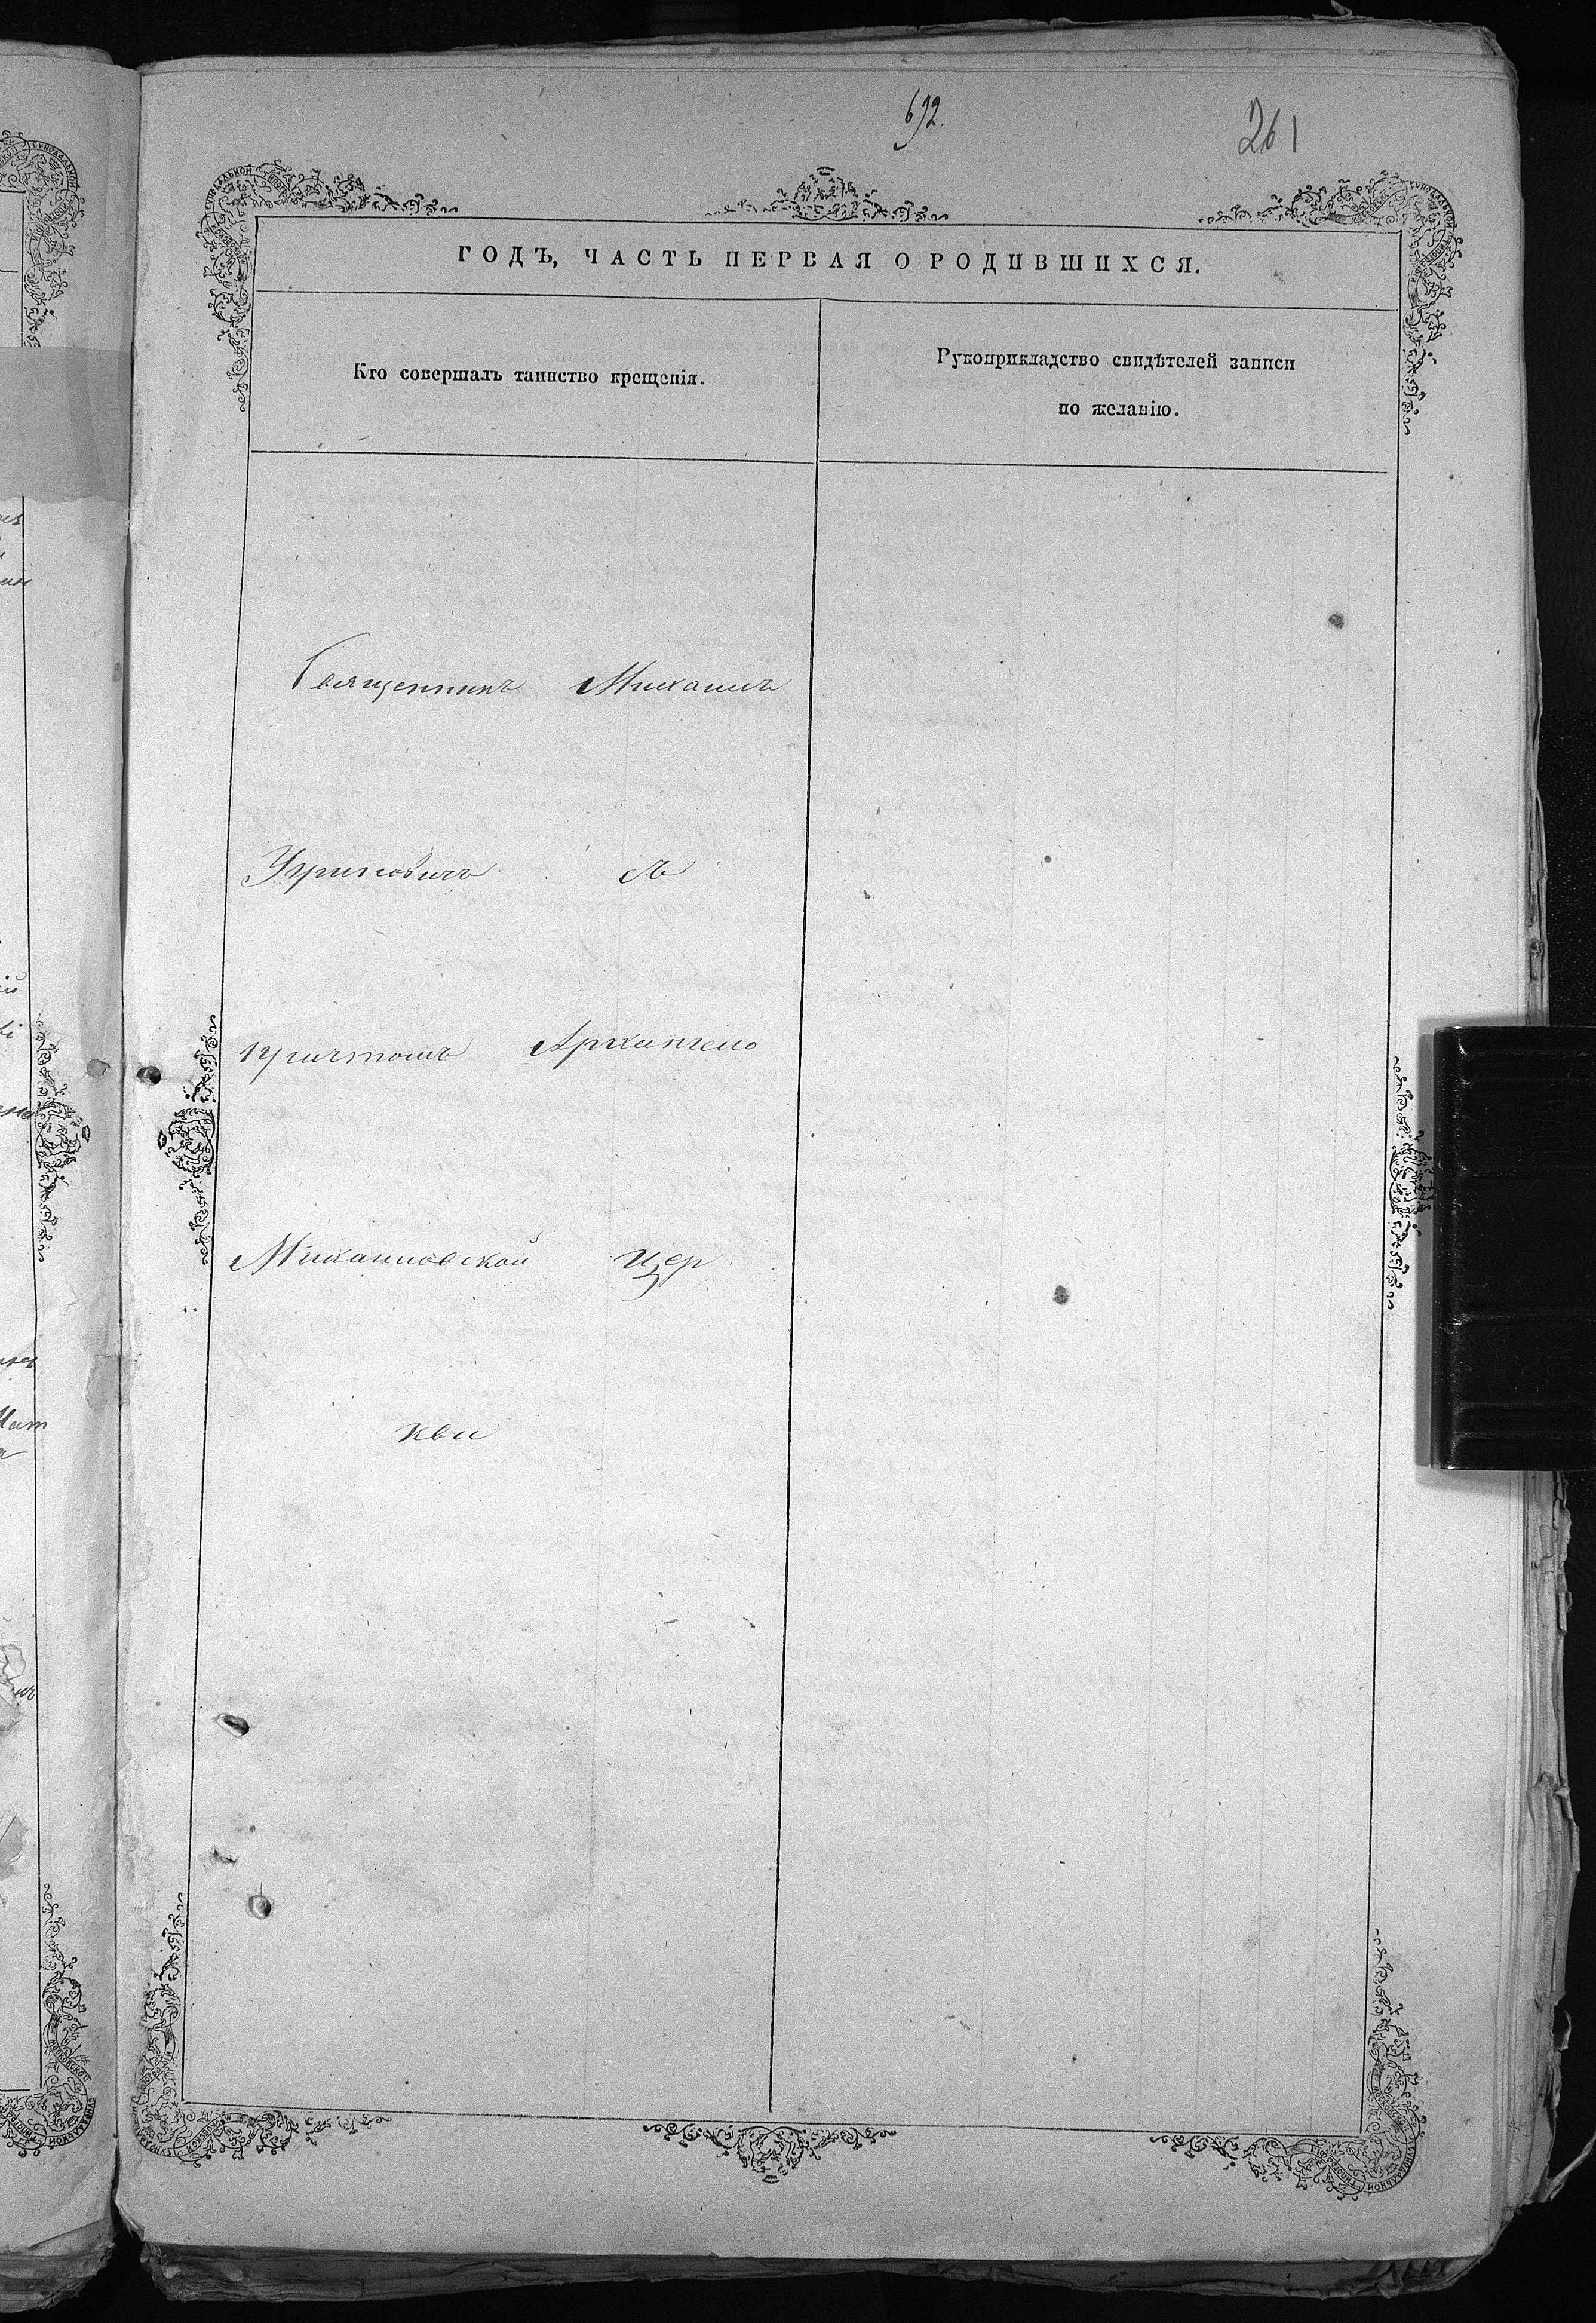 692.
261
ГОДЪ, ЧАСТЬ ПЕРВАЯ О РОДИВШИХСЯ.
Кто совершалъ таинство крещенія.
Рукоприкладство свидѣтелей записи
по желанію.
Священникъ Михаилъ
Угриновичъ съ
причтомъ Архангело
Михаиловской цер
кви